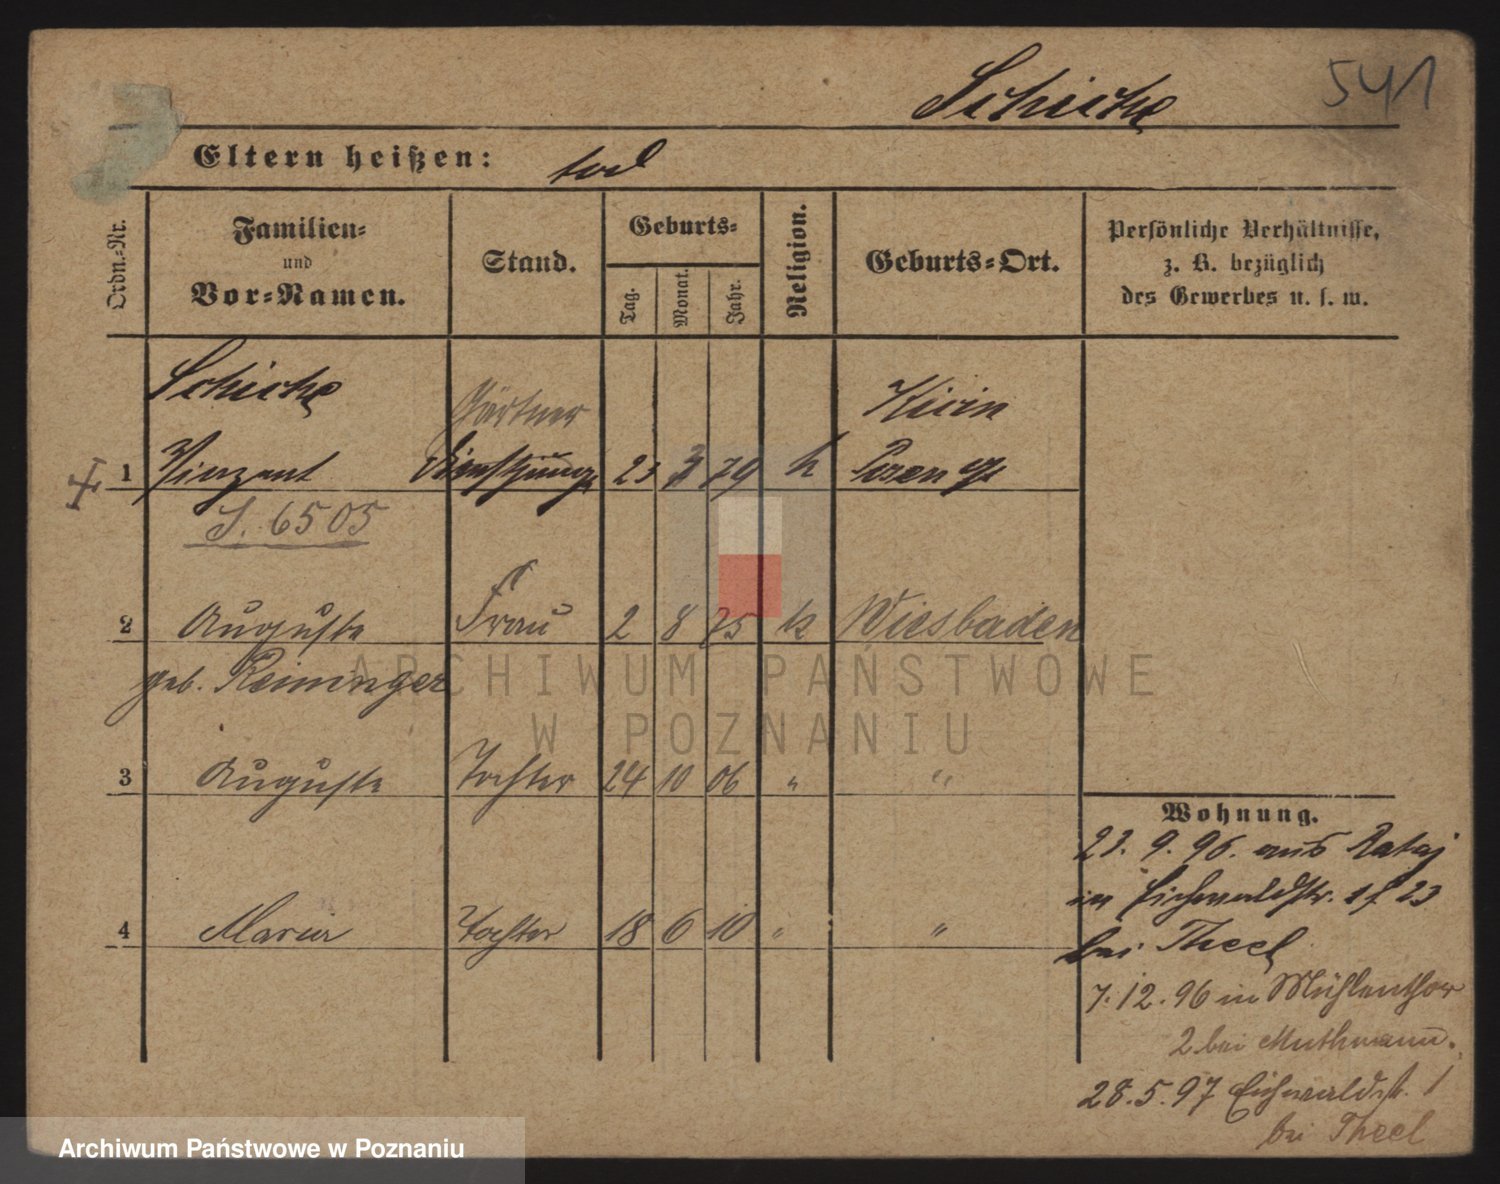 Schicke 541
Eltern heißen: tod
Ordn.-Nr.
Familien-
und
Vor-Namen.
Stand.
Geburts-
Tag.
Monat.
Jahr.
Religion.
Geburts-Ort.
Persönliche Verhältnisse,
z. B. bezüglich
des Gewerbes u. s. w.
Schicke
Gärtner
1 Vinzent 23 3 79 k Posen
S. 6505
2 Auguste Frau 2 8 75 k Wiesbaden
geb. Reininger
3 Auguste Tochter 24 10 06 " "
4 Maria Tochter 18 6 10 " "
Wohnung.
23. 9. 96. aus Rataj
in Eichwaldstr. 23
bei Theel
7. 12. 96 in Mühlenthor
2 bei Muthmann.
28. 5. 97 Eichwaldstr. 1
bei Theel
ARCHIWUM PAŃSTWOWE
W POZNANIU
Archiwum Państwowe w Poznaniu